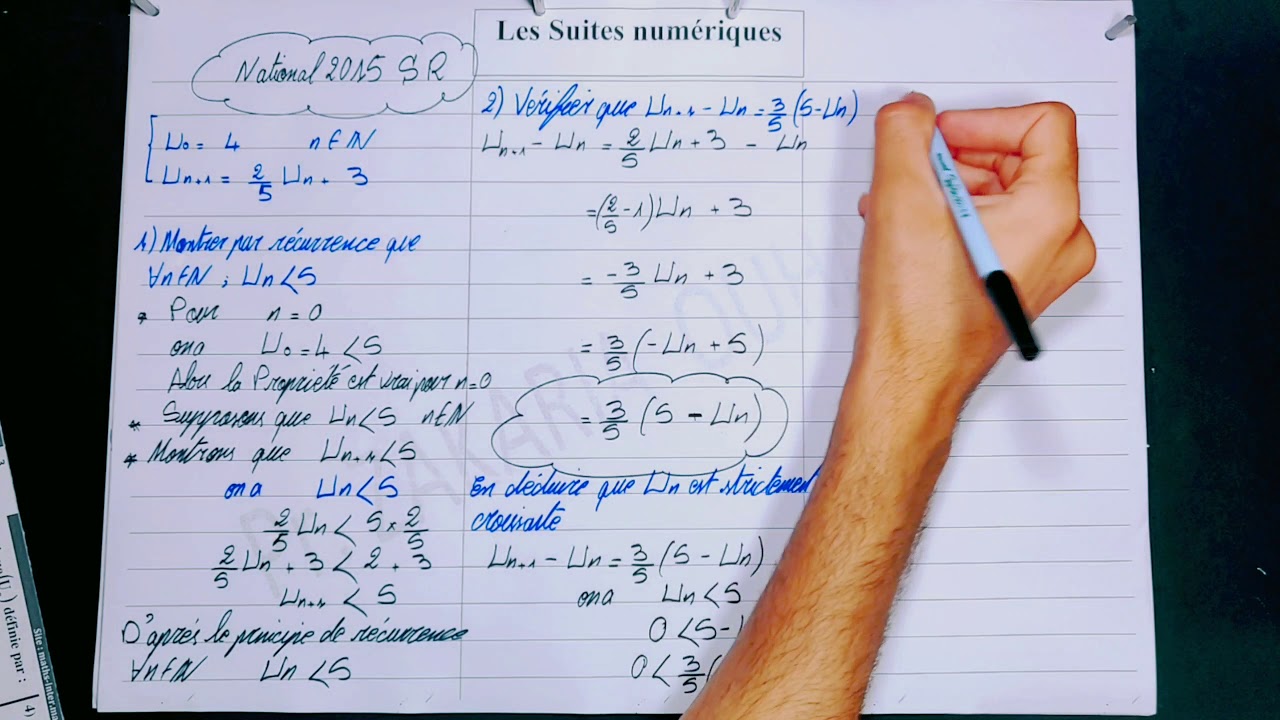 Les Suites numériques
National 2015 SR
U0 = 4 n∈ℕ
Un+1 = 2/5 Un + 3
1) Montrer par récurrence que
∀n∈ℕ ; Un < 5
* Pour n = 0
ona U0 = 4 < 5
Alors la Propriété est vrai pour n=0
* Supposons que Un < 5 n∈ℕ
* Montrons que Un+1 < 5
ona Un < 5
2/5 Un < 5 × 2/5
2/5 Un + 3 < 2 + 3
Un+1 < 5
D'aprés le principe de récurrence
∀n∈ℕ Un < 5
2) Vérifier que Un+1 - Un = 3/5 (5-Un)
Un+1 - Un = 2/5 Un + 3 - Un
= (2/5 - 1) Un + 3
= -3/5 Un + 3
= 3/5 (-Un + 5)
= 3/5 (5 - Un)
En déduire que Un est strictement
croissante
Un+1 - Un = 3/5 (5 - Un)
ona Un < 5
0 < 5 -
0 < 3/5 (
définie par :
Site : maths-inter.ma
4)